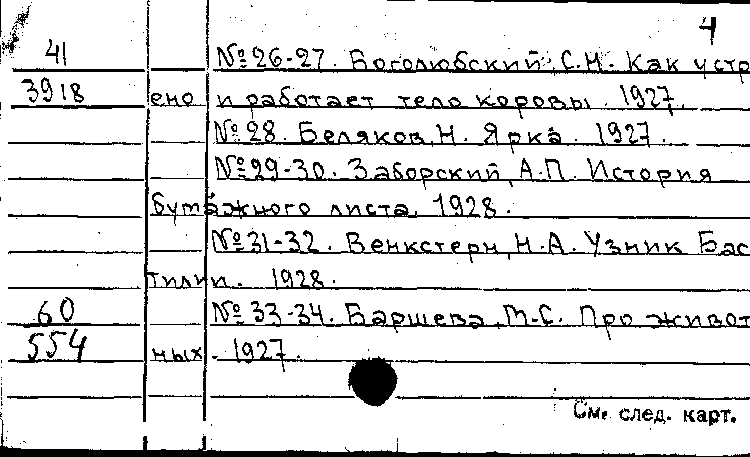 4
41 №26-27. Боголюбский, С.Н. Как устр
3918 ено и работает тело коровы. 1927.
№28. Беляков, Н. Ярка. 1927.
№29-30. Заборский, А.П. История
бумажного листа. 1928.
№31-32. Венкстерн, Н.А. Узник Бас
тилии. 1928.
60 №33-34. Баршева, М.С. Про живот
554 ных. 1927.
См. след. карт.